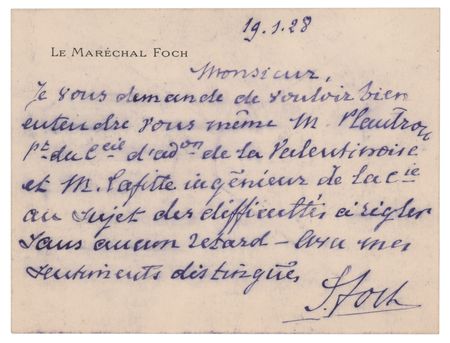 19.1.28
LE MARÉCHAL FOCH
Monsieur,
Je vous demande de vouloir bien
entendre vous même M.
Pt du Ceil d'adon de la Valentinoise
et M. Lafitte ingénieur de la Cie
au sujet des difficultés à régler
sans aucun retard – mes
sentiments distingués
F. Foch